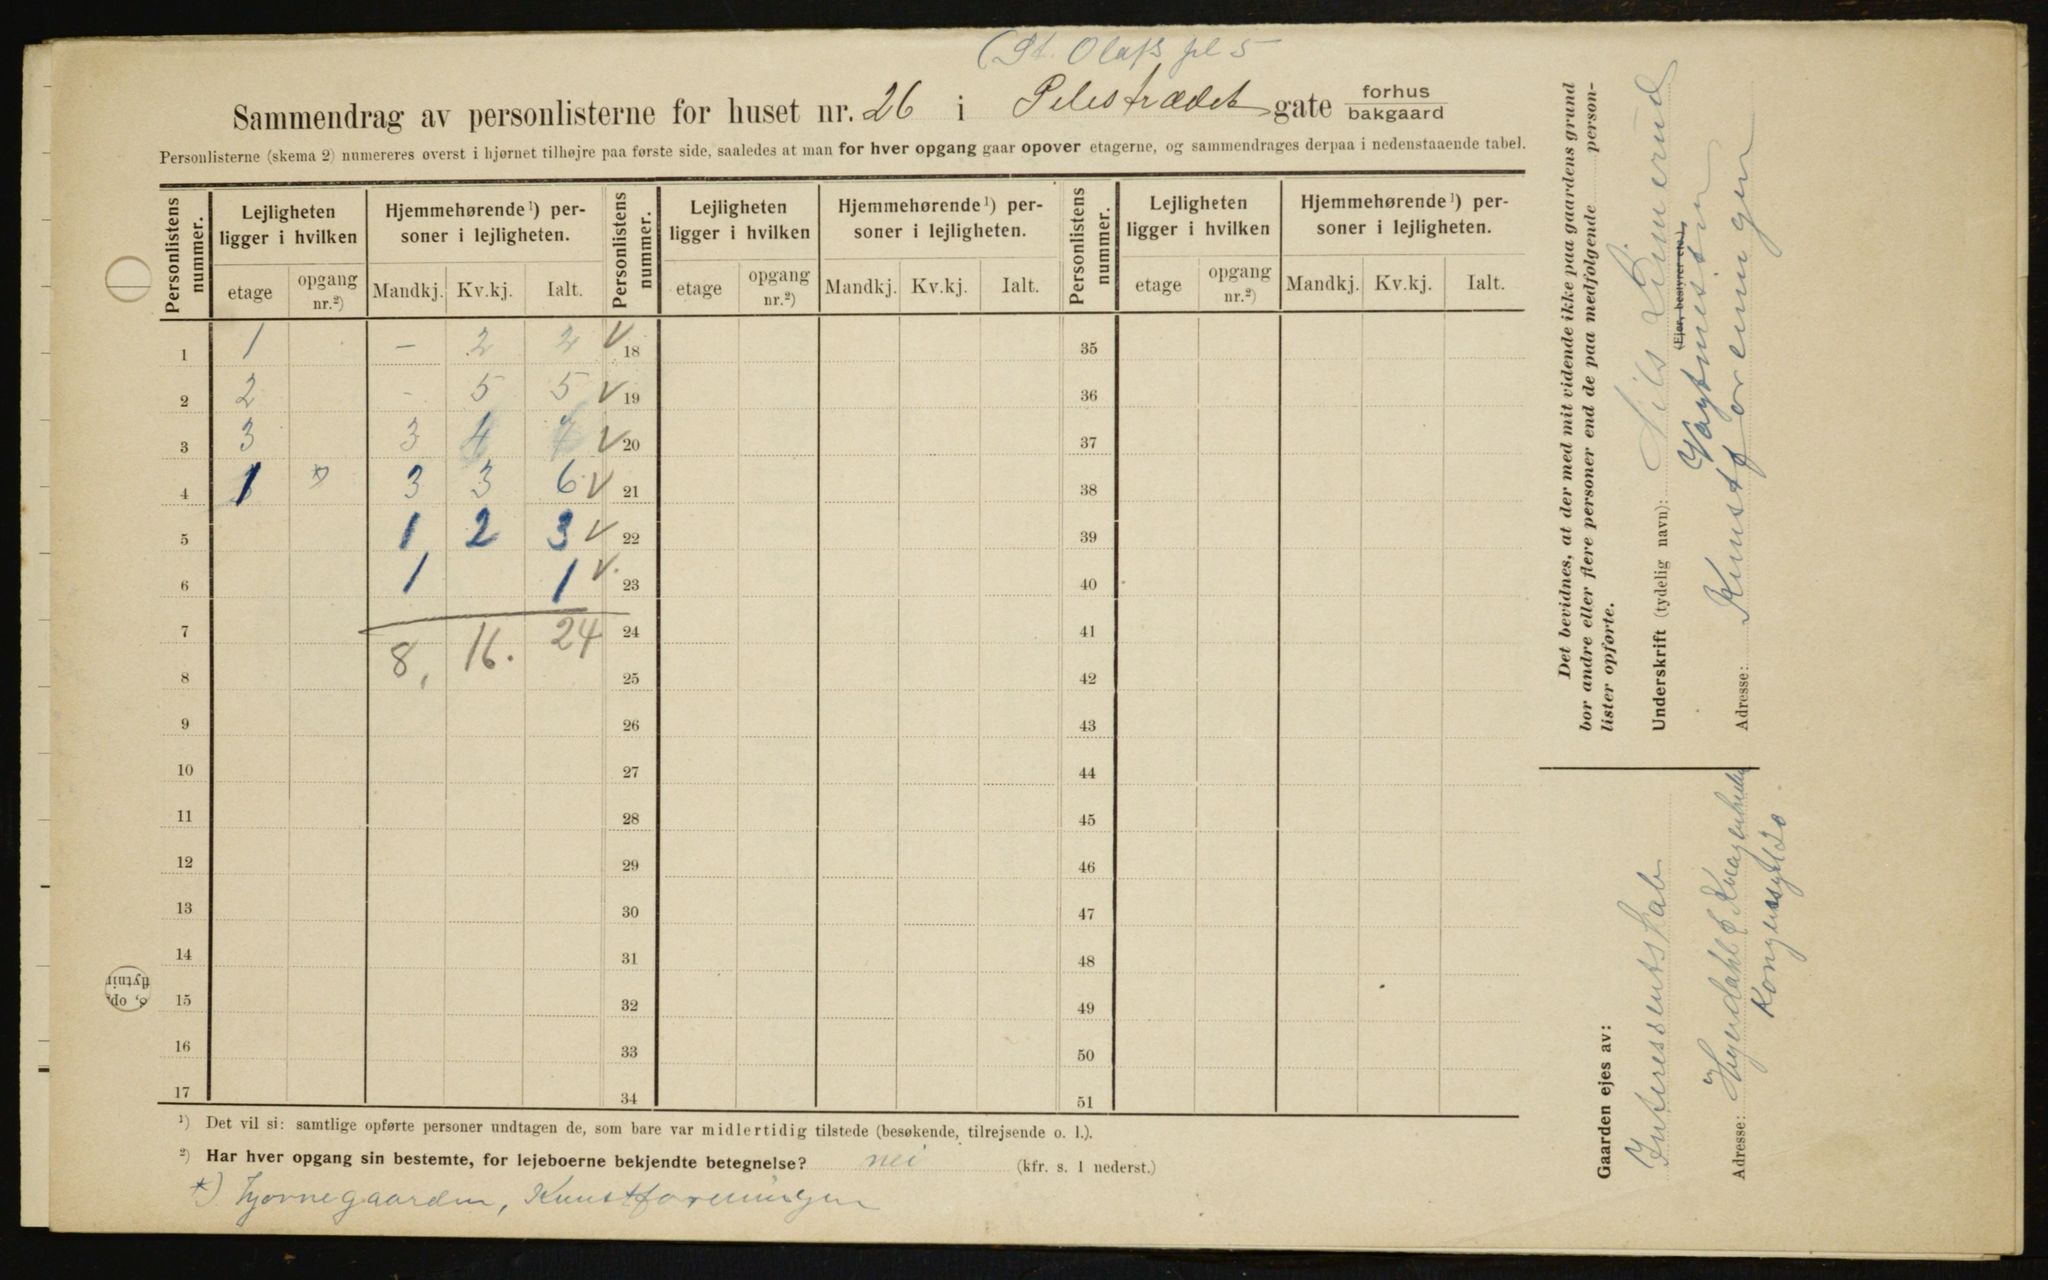 (St. Olafs pl 5
Sammendrag av personlisterne for huset nr. 26 i Pilestrædet gate forhus
bakgaard
Personlisterne (skema 2) numereres øverst i hjørnet tilhøjre paa første side, saaledes at man for hver opgang gaar opover etagerne, og sammendrages derpaa i nedenstaaende tabel.
Personlistens nummer. Lejligheten ligger i hvilken Hjemmehørende ¹) personer i lejligheten. Personlistens nummer. Lejligheten ligger i hvilken Hjemmehørende ¹) personer i lejligheten. Personlistens nummer. Lejligheten ligger i hvilken Hjemmehørende ¹) personer i lejligheten.
etage opgang nr.²) Mandkj. Kv.kj. Ialt. etage opgang nr.²) Mandkj. Kv.kj. Ialt. etage opgang nr.²) Mandkj. Kv.kj. Ialt.
1 1 – 2 2 V 18 35
2 2 - 5 5 V 19 36
3 3 3 4 7 V 20 37
4 1 *) 3 3 6 V 21 38
5 1 2 3 V 22 39
6 1 1 V. 23 40
7 24 41
8, 16. 24
8 25 42
9 26 43
10 27 44
11 28 45
12 29 46
13 30 47
14 31 48
15 32 49
16 33 50
17 34 51
¹) Det vil si: samtlige opførte personer undtagen de, som bare var midlertidig tilstede (besøkende, tilrejsende o. l.).
²) Har hver opgang sin bestemte, for lejeboerne bekjendte betegnelse? nei (kfr. s. 1 nederst.)
*) Hjørnegaarden, Kunstforeningen
Det bevidnes, at der med mit vidende ikke paa gaardens grund
bor andre eller flere personer end de paa medfølgende personlister opførte.
Underskrift (tydelig navn): Nils
(Ejer, bestyrer etc.)
Vagtmester
Adresse: Kunstforeningen
Gaarden ejes av:
Interessentskab
Adresse: Heyerdahl &
Kongensgt 20
flytnin